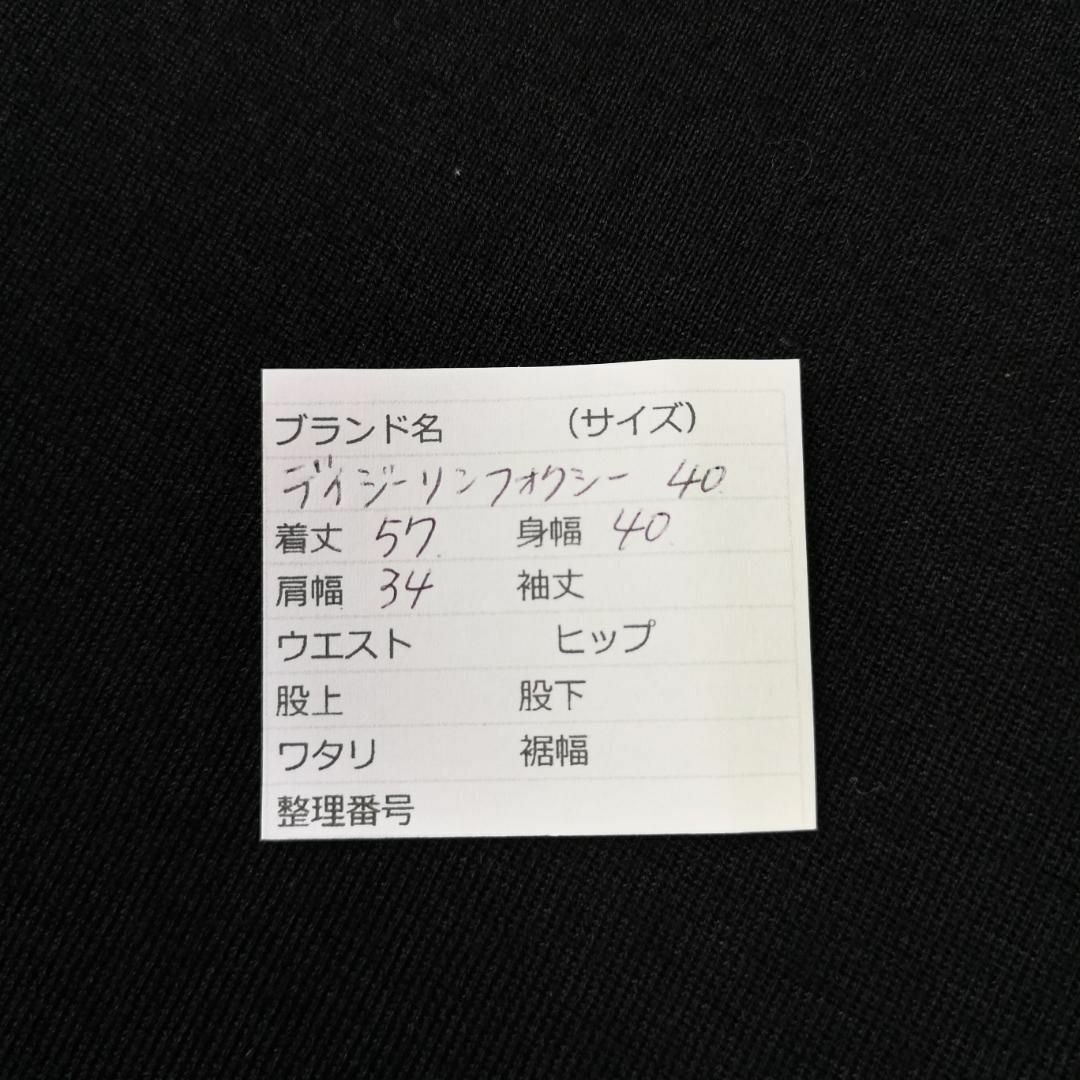 ブランド名 (サイズ)
デイジーリンフォクシー 40
着丈 57 身幅 40
肩幅 34 袖丈
ウエスト ヒップ
股上 股下
ワタリ 裾幅
整理番号